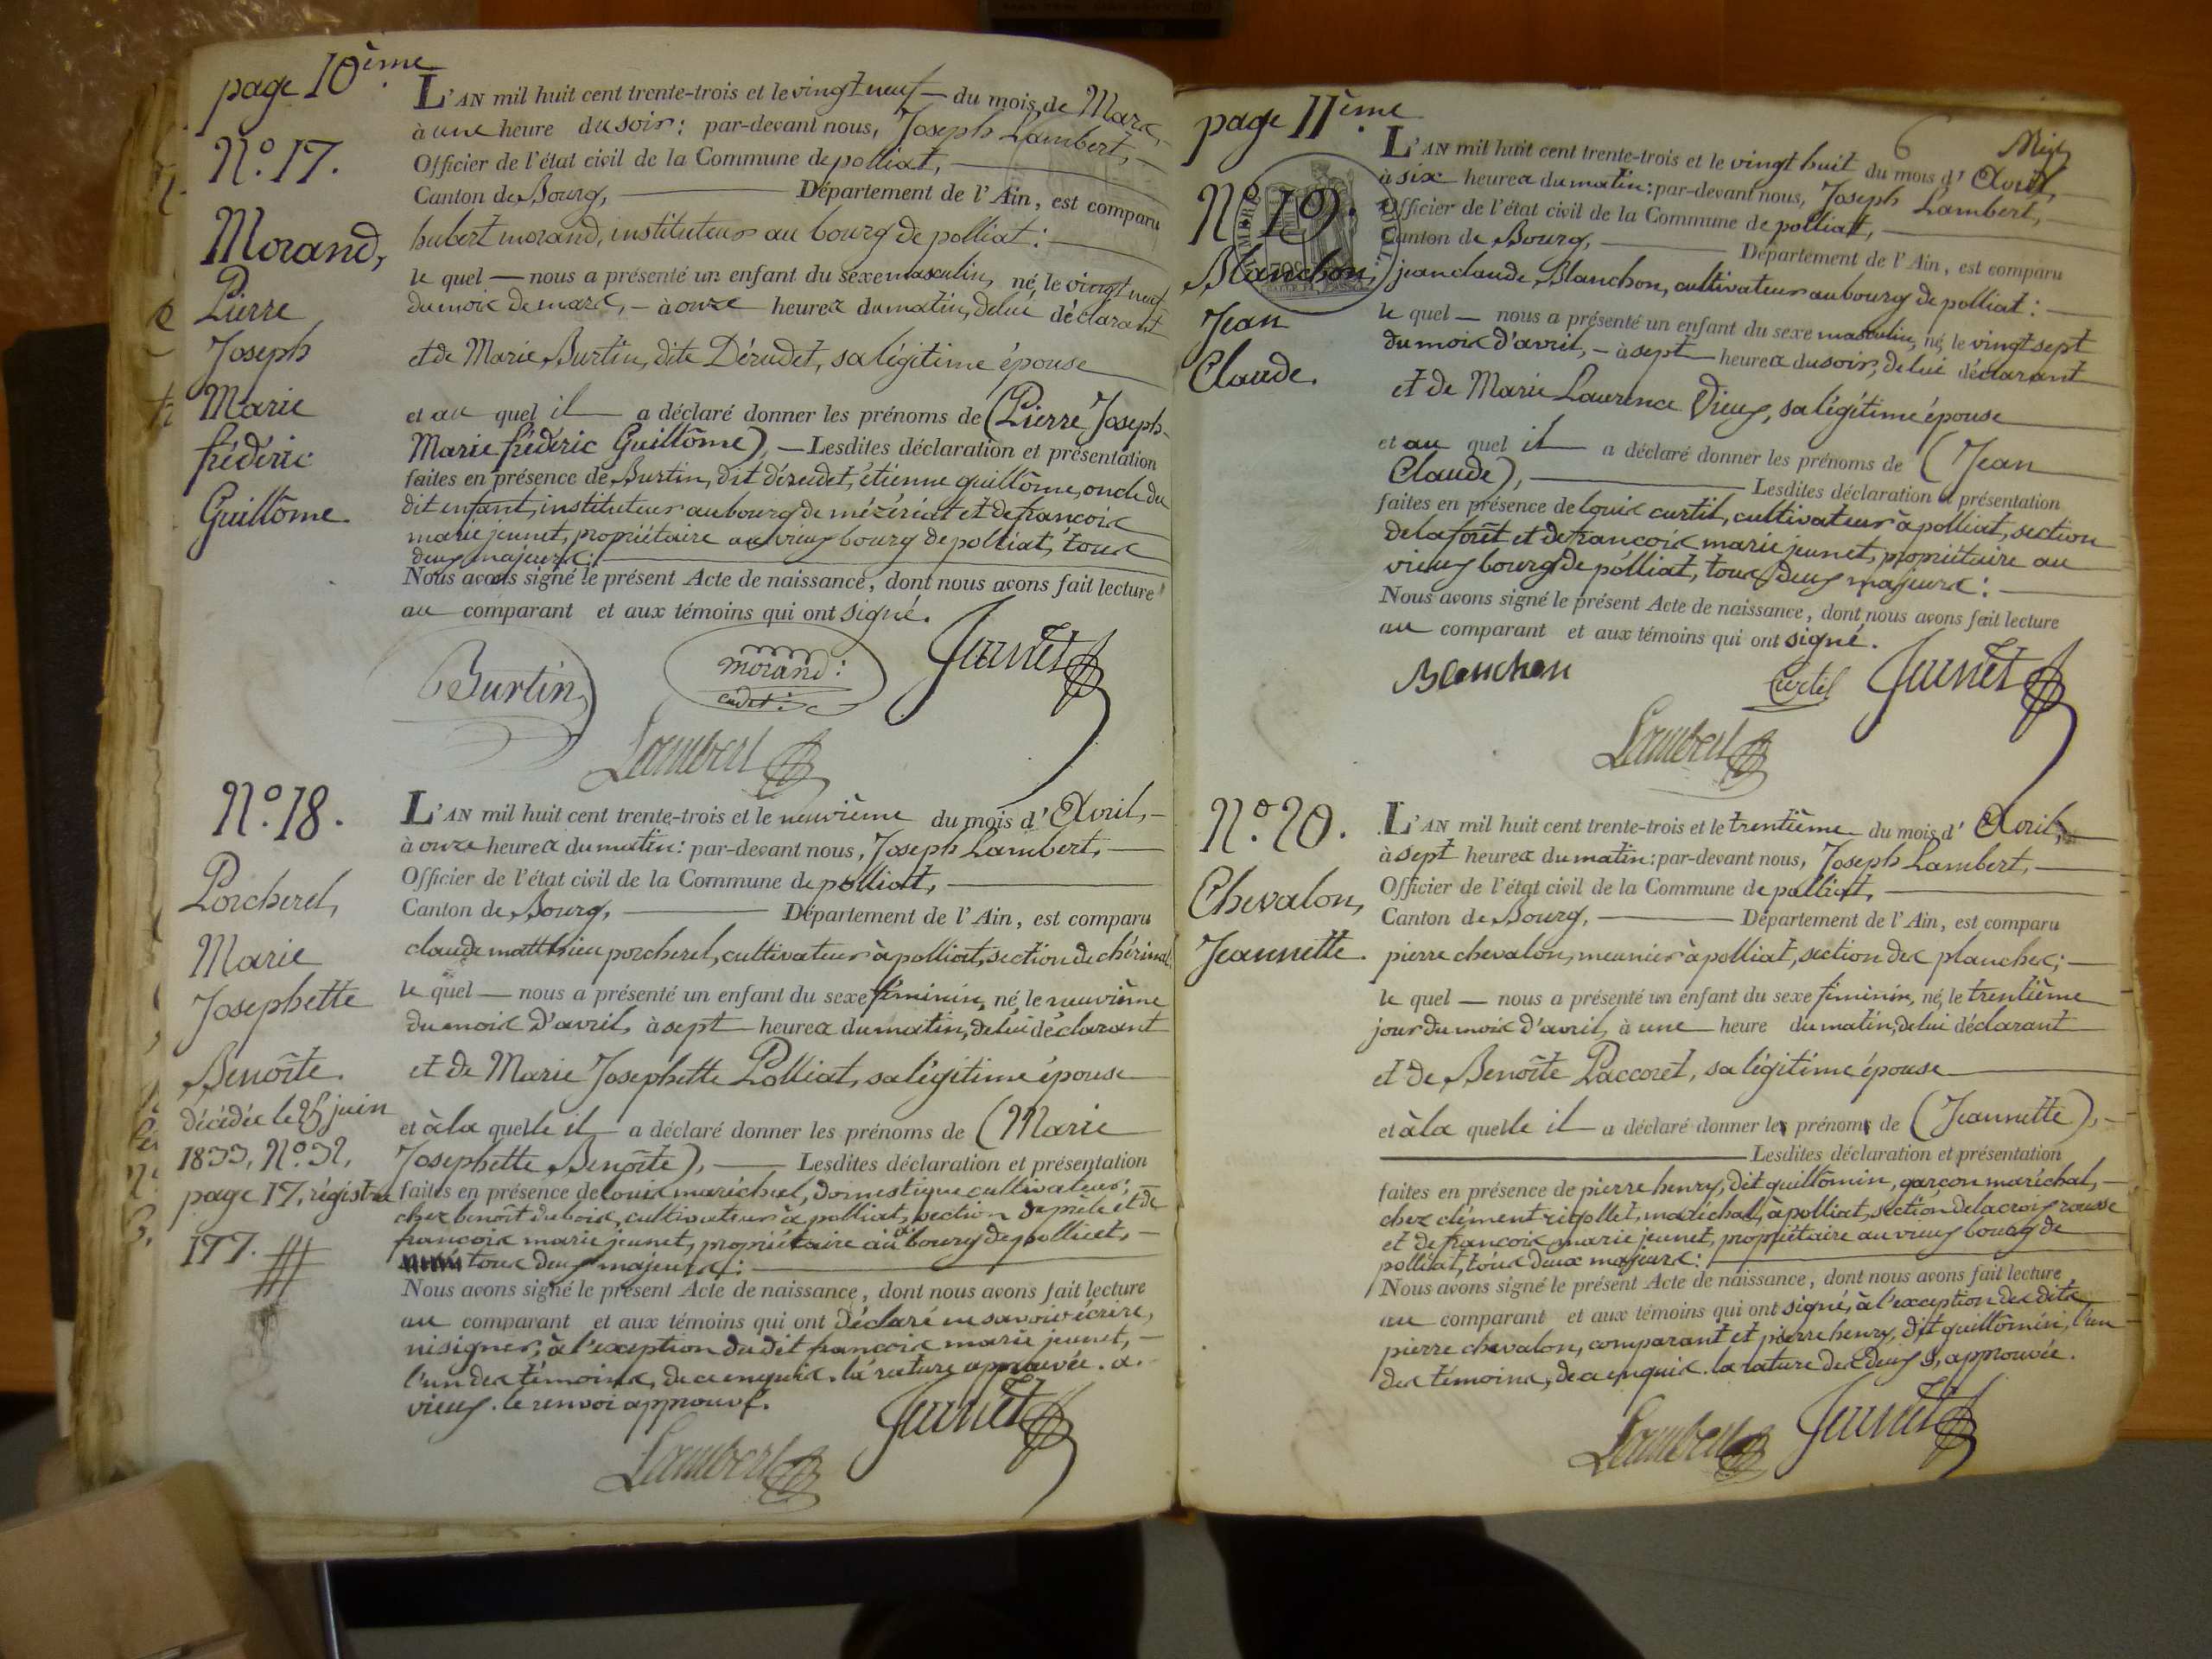 page 10ème.
N.° 17.
Morand,
Pierre
Joseph
Marie
frédéric
Guillôme.
L'AN mil huit cent trente-trois et le vingt neuf du mois de Mars,
à une heure du soir : par-devant nous, Joseph Lambert,
Officier de l'état civil de la Commune de polliat,
Canton de Bourg, Département de l'Ain, est comparu
hubert morand, instituteur au bourg de polliat :
le quel nous a présenté un enfant du sexe masculin, né, le vingt neuf
du mois de mars, à onze heures du matin, de lui déclarant
et de Marie Burtin, dite Dérudet, sa légitime épouse
et au quel il a déclaré donner les prénoms de (Pierre Joseph
Marie frédéric Guillôme), Lesdites déclaration et présentation
faites en présence de Burtin, dit dérudet, étienne guillôme, oncle du
dit enfant, instituteur au bourg de mézériat et de françois
marie jeunet, propriétaire au vieux bourg de polliat, tous
deux majeurs :
Nous avons signé le présent Acte de naissance, dont nous avons fait lecture
au comparant et aux témoins qui ont signé.
Burtin morand : cadet Jeunet
Lambert
N.° 18.
Porcherel,
Marie
Josephette
Benoîte.
décédée le 25 juin
1833, N.° 32,
page 17, régistre
177.
L'AN mil huit cent trente-trois et le neuvième du mois d' Avril,
à onze heures du matin : par-devant nous, Joseph Lambert,
Officier de l'état civil de la Commune de polliat,
Canton de Bourg, Département de l'Ain, est comparu
claude matthieu porcherel, cultivateur à polliat, section de chérinal,
le quel nous a présenté un enfant du sexe féminin, né, le neuvième
du mois d'avril, à sept heures du matin, de lui déclarant
et de Marie Josephette Polliat, sa légitime épouse
et à la quelle il a déclaré donner les prénoms de (Marie
Josephette Benoîte), Lesdites déclaration et présentation
faites en présence de louis maréchal, domestique cultivateur,
chez benoît dubois, cultivateur à polliat, section de prêle et de
françois marie jeunet, propriétaire au a bourg de polliat,
tous deux majeurs :
Nous avons signé le présent Acte de naissance, dont nous avons fait lecture
au comparant et aux témoins qui ont déclaré ne savoir écrire,
ni signer, à l'exception du dit françois marie jeunet,
l'un des témoins, de ce enquis. la rature approuvée. a.
vieux. le renvoi approuvé.
Jeunet
Lambert
page 11ème.
6
N° 19.
Blanchon,
Jean
Claude.
L'AN mil huit cent trente-trois et le vingt huit du mois d' Avril,
à six heures du matin : par-devant nous, Joseph Lambert,
Officier de l'état civil de la Commune de polliat,
Canton de Bourg, Département de l'Ain, est comparu
jean claude Blanchon, cultivateur au bourg de polliat :
le quel nous a présenté un enfant du sexe masculin, né, le vingt sept
du mois d'avril, à sept heures du soir, de lui déclarant
et de Marie Laurence Vieux, sa légitime épouse
et au quel il a déclaré donner les prénoms de (Jean
Claude), Lesdites déclaration et présentation
faites en présence de louis curtil, cultivateur à polliat, section
de la forêt et de françois marie jeunet, propriétaire au
vieux bourg de polliat, tous deux majeurs :
Nous avons signé le présent Acte de naissance, dont nous avons fait lecture
au comparant et aux témoins qui ont signé.
Blanchon Curtil Jeunet
Lambert
N.° 20.
Chevalon,
Jeannette.
L'AN mil huit cent trente-trois et le trentième du mois d' Avril,
à sept heures du matin : par-devant nous, Joseph Lambert,
Officier de l'état civil de la Commune de polliat,
Canton de Bourg, Département de l'Ain, est comparu
pierre chevalon, meunier à polliat, section des planches ;
le quel nous a présenté un enfant du sexe féminin, né, le trentième
jour du mois d'avril, à une heure du matin, de lui déclarant
et de Benoîte Paccoret, sa légitime épouse
et à la quelle il a déclaré donner les prénoms de (Jeannette),
Lesdites déclaration et présentation
faites en présence de pierre henry, dit guillômin, garçon maréchal,
chez clément rigollet, maréchal, à polliat, section de la croix rousse
et de françois marie jeunet, propriétaire au vieux bourg de
polliat, tous deux majeurs :
Nous avons signé le présent Acte de naissance, dont nous avons fait lecture
au comparant et aux témoins qui ont signé, à l'exception des dits
pierre chevalon, comparant et pierre henry, dit guillômin, l'un
des témoins, de ce enquis. la rature des deux s, approuvée.
Lambert Jeunet